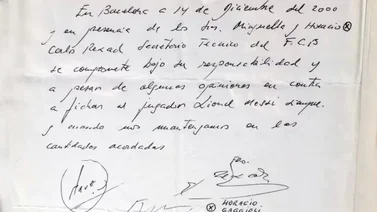 En Barcelona a 14 de Diciembre del 2000
y en presencia de los Srs. Minguella y Horacio ⊗
Carlos Rexach Secretario Técnico del F.C.B
se compromete bajo su responsabilidad y
a pesar de algunas opiniones en contra
a fichar al jugador Lionel Messi siempre
y cuando nos mantengamos en las
cantidades acordadas
⊗ HORACIO
GAGGIOLI